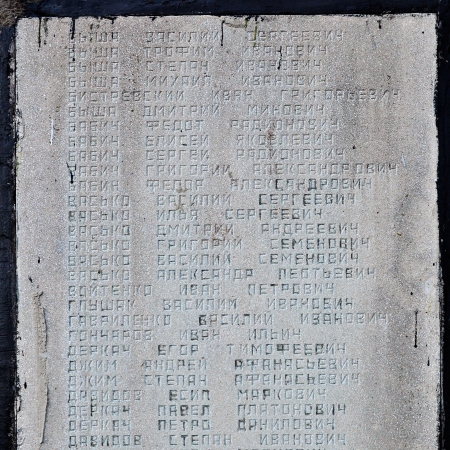 БЫША ВАСИЛИЙ СЕРГЕЕВИЧ
БЫША ТРОФИМ ИВАНОВИЧ
БЫША СТЕПАН ИВАНОВИЧ
БЫША МИХАИЛ ИВАНОВИЧ
БИСТРЕВСКИЙ ИВАН ГРИГОРЬЕВИЧ
БЫША ДМИТРИЙ МИНОВИЧ
БАБИЧ ФЕДОТ РАДИОНОВИЧ
БАБИЧ ЕЛИСЕЙ ЯКОВЛЕВИЧ
БАБИЧ СЕРГЕЙ РАДИОНОВИЧ
БАБИЧ ГРИГОРИЙ АЛЕКСАНДРОВИЧ
БАБИЧ ФЕДОР АЛЕКСАНДРОВИЧ
ВАСЬКО ВАСИЛИЙ СЕРГЕЕВИЧ
ВАСЬКО ИЛЬЯ СЕРГЕЕВИЧ
ВАСЬКО ДМИТРИЙ АНДРЕЕВИЧ
ВАСЬКО ГРИГОРИЙ СЕМЕНОВИЧ
ВАСЬКО ВАСИЛИЙ СЕМЕНОВИЧ
ВАСЬКО АЛЕКСАНДР ЛЕОТЬЕВИЧ
ВОЙТЕНКО ИВАН ПЕТРОВИЧ
ГЛУШАК ВАСИЛИЙ ИВАНОВИЧ
ГАВРИЛЕНКО ВАСИЛИЙ ИВАНОВИЧ
ГОНЧАРОВ ИВАН ИЛЬИЧ
ДЕРКАЧ ЕГОР ТИМОФЕЕВИЧ
ДЖИМ АНДРЕЙ АФАНАСЬЕВИЧ
ДЖИМ СТЕПАН АФАНАСЬЕВИЧ
ДАВИДОВ ЕСИП МАРКОВИЧ
ДЕРКАЧ ПАВЕЛ ПЛАТОНОВИЧ
ДЕРКАЧ ПЕТРО ДАНИЛОВИЧ
ДАВИДОВ СТЕПАН ИВАНОВИЧ